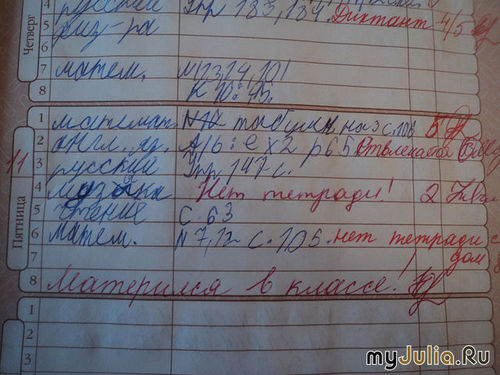 Четверг
русский Упр 183,184. Диктант 4/5
5 физ-ра
6
7 матем.
8
11
Пятница
1 математ. с.106 5
2 англ. яз. A/b: ex2 p65 Отвлекался
3 русский Упр 147 с.
4 музыка Нет тетради! 2
5 чтение с. 63
6 матем. N 7,12 с. 106. нет тетради с
7 дом
8 Матерился в классе!
1
2
3
myJulia.Ru